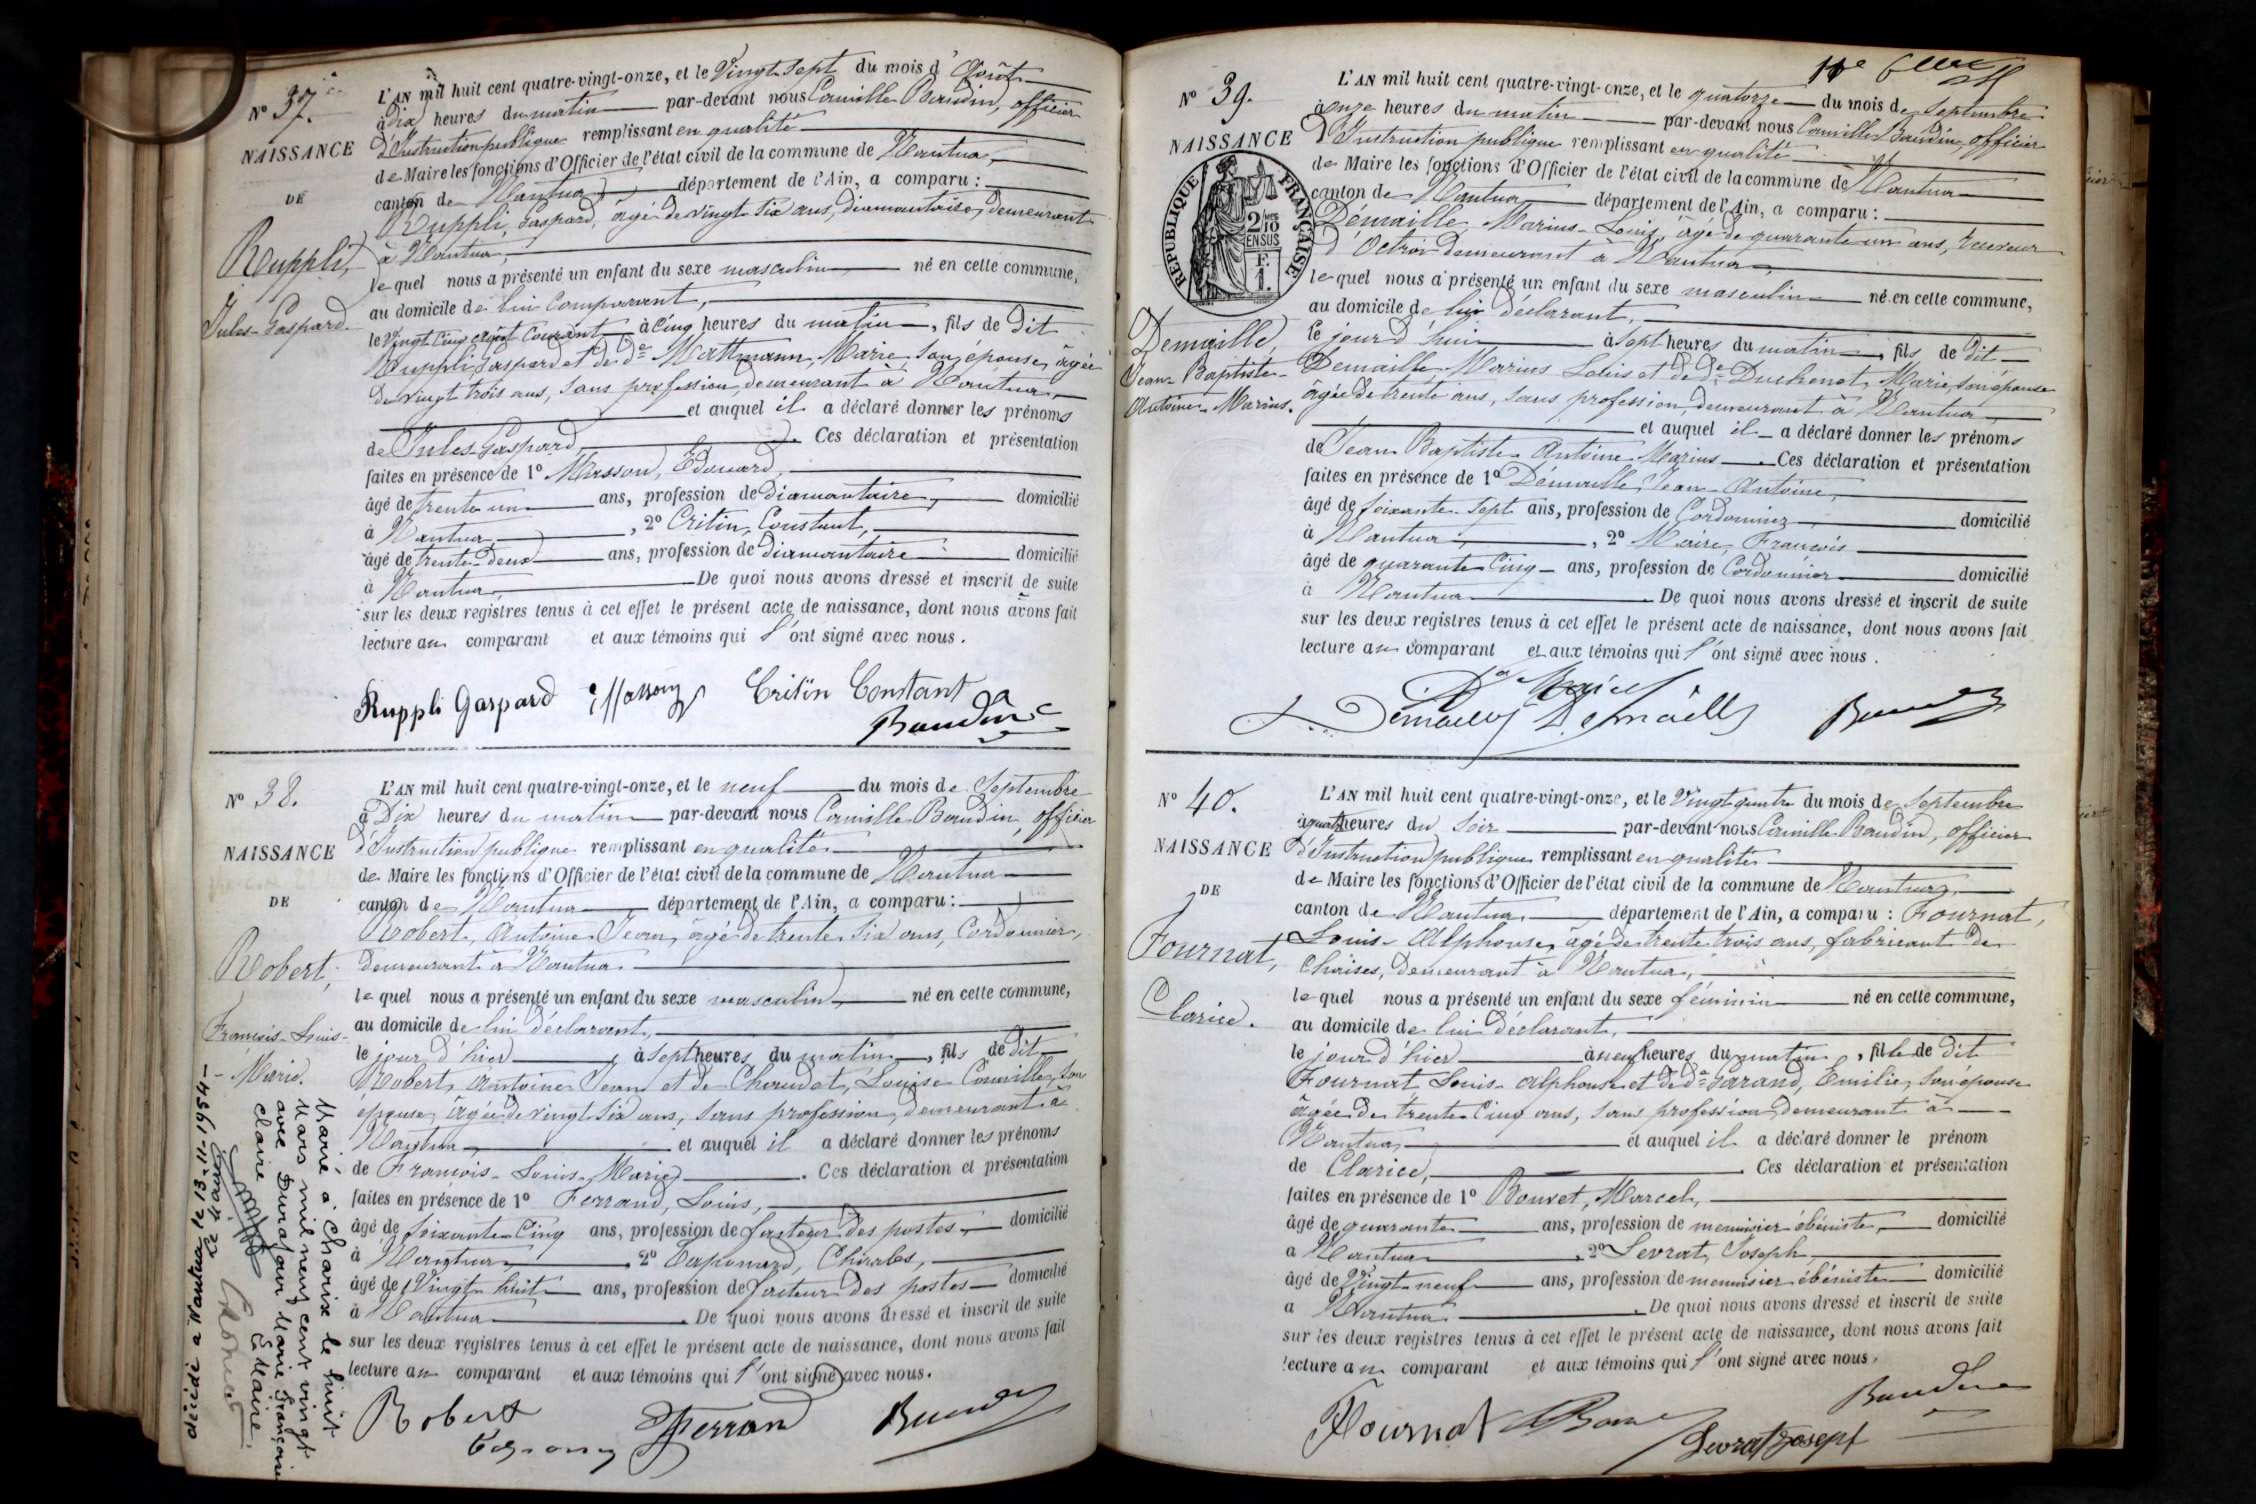 No 37.
NAISSANCE
DE
Ruppli,
Jules-Gaspard
L'AN mil huit cent quatre-vingt-onze, et le Vingt-Sept du mois d'Août
à dix heures du matin par-devant nous Camille Baudin, officier
d'Instruction publique remplissant en qualité
de Maire les fonctions d'Officier de l'état civil de la commune de Nantua,
canton de Nantua département de l'Ain, a comparu :
Ruppli, Gaspard, âgé de vingt six ans, diamantaire, demeurant
à Nantua,
lequel nous a présenté un enfant du sexe masculin né en cette commune,
au domicile de lui Comparant,
le vingt cinq août Courant à cinq heures du matin, fils de dit
Ruppli, Gaspard et de de Mattmann, Marie son épouse, âgée
de vingt trois ans, sans profession, demeurant à Nantua,
et auquel il a déclaré donner les prénoms
de Jules Gaspard. Ces déclaration et présentation
faites en présence de 1o Masson, Edouard,
âgé de trente un ans, profession de diamantaire, domicilié
à Nantua, 2o Critin, Constant,
âgé de trente-deux ans, profession de diamantaire domicilié
à Nantua, De quoi nous avons dressé et inscrit de suite
sur les deux registres tenus à cet effet le présent acte de naissance, dont nous avons fait
lecture au comparant et aux témoins qui l'ont signé avec nous.
Ruppli Gaspard Masson Critin Constant
Baudin
No 38.
NAISSANCE
DE
Robert,
François-Louis-
Marie.
Marié à Charix le huit
Mars mil neuf cent vingt
avec Durafour Marie Françoise
Claire
Le Maire,
décédé à Nantua le 13-11-1954-
Le Maire
L'AN mil huit cent quatre-vingt-onze, et le neuf du mois de Septembre
à Dix heures du matin par-devant nous Camille Baudin, officier
d'Instruction publique remplissant en qualité
de Maire les fonctions d'Officier de l'état civil de la commune de Nantua
canton de Nantua département de l'Ain, a comparu :
Robert, Antoine Jean, âgé de trente six ans, Cordonnier,
demeurant à Nantua
lequel nous a présenté un enfant du sexe masculin, né en cette commune,
au domicile de lui déclarant,
le jour d'hier, à sept heures du matin, fils de dit
Robert, Antoine Jean et de Chaudet, Louise Camille, son
épouse, âgée de vingt six ans, sans profession, demeurant à
Nantua, et auquel il a déclaré donner les prénoms
de François-Louis-Marie. Ces déclaration et présentation
faites en présence de 1o Ferrand, Louis,
âgé de soixante-cinq ans, profession de facteur des postes, domicilié
à Nantua, 2o Taponard, Charles,
âgé de Vingt huit ans, profession de facteur des postes domicilié
à Nantua. De quoi nous avons dressé et inscrit de suite
sur les deux registres tenus à cet effet le présent acte de naissance, dont nous avons fait
lecture au comparant et aux témoins qui l'ont signé avec nous.
Robert Ferrand Baudin
No 39.
NAISSANCE
RÉPUBLIQUE FRANÇAISE
2/10 EN SUS
F. 1.
Demaille,
Jean-Baptiste-
Antoine-Marius.
L'AN mil huit cent quatre-vingt-onze, et le quatorze du mois de Septembre
à onze heures du matin par-devant nous Camille Baudin, officier
d'Instruction publique remplissant en qualité
de Maire les fonctions d'Officier de l'état civil de la commune de Nantua
canton de Nantua département de l'Ain, a comparu :
Démaille, Marius-Louis, âgé de quarante un ans, receveur
d'Octroi demeurant à Nantua,
lequel nous a présenté un enfant du sexe masculin né en cette commune,
au domicile de lui déclarant,
le jour d'hui à sept heures du matin, fils de dit
Demaille Marius Louis et de de Duchenet, Marie, son épouse
âgée de trente ans, sans profession, demeurant à Nantua
et auquel il a déclaré donner les prénoms
de Jean Baptiste Antoine Marius. Ces déclaration et présentation
faites en présence de 1o Démaille, Jean-Antoine,
âgé de soixante-sept ans, profession de Cordonnier domicilié
à Nantua, 2o Maire, François
âgé de quarante cinq ans, profession de Cordonnier domicilié
à Nantua. De quoi nous avons dressé et inscrit de suite
sur les deux registres tenus à cet effet le présent acte de naissance, dont nous avons fait
lecture au comparant et aux témoins qui l'ont signé avec nous.
Maire
Demaille Demaille Baudin
No 40.
NAISSANCE
DE
Fournat,
Clarice.
L'AN mil huit cent quatre-vingt-onze, et le Vingt-quatre du mois de Septembre
à quatre heures du soir par-devant nous Camille Baudin, officier
d'Instruction publique remplissant en qualité
de Maire les fonctions d'Officier de l'état civil de la commune de Nantua,
canton de Nantua, département de l'Ain, a comparu : Fournat,
Louis-Alphonse, âgé de trente trois ans, fabricant de
Chaises, demeurant à Nantua,
lequel nous a présenté un enfant du sexe féminin né en cette commune,
au domicile de lui déclarant,
le jour d'hier à neuf heures du matin, fille de dit
Fournat Louis-Alphonse et de de Garand, Emilie, son épouse
âgée de trente cinq ans, sans profession demeurant à
Nantua, et auquel il a déclaré donner le prénom
de Clarice, Ces déclaration et présentation
faites en présence de 1o Bouvet, Marcel,
âgé de quarante ans, profession de menuisier ébéniste, domicilié
à Nantua, 2o Levrat, Joseph
âgé de Vingt neuf ans, profession de menuisier ébéniste domicilié
à Nantua. De quoi nous avons dressé et inscrit de suite
sur les deux registres tenus à cet effet le présent acte de naissance, dont nous avons fait
lecture au comparant et aux témoins qui l'ont signé avec nous.
Baudin
Fournat Levrat Joseph